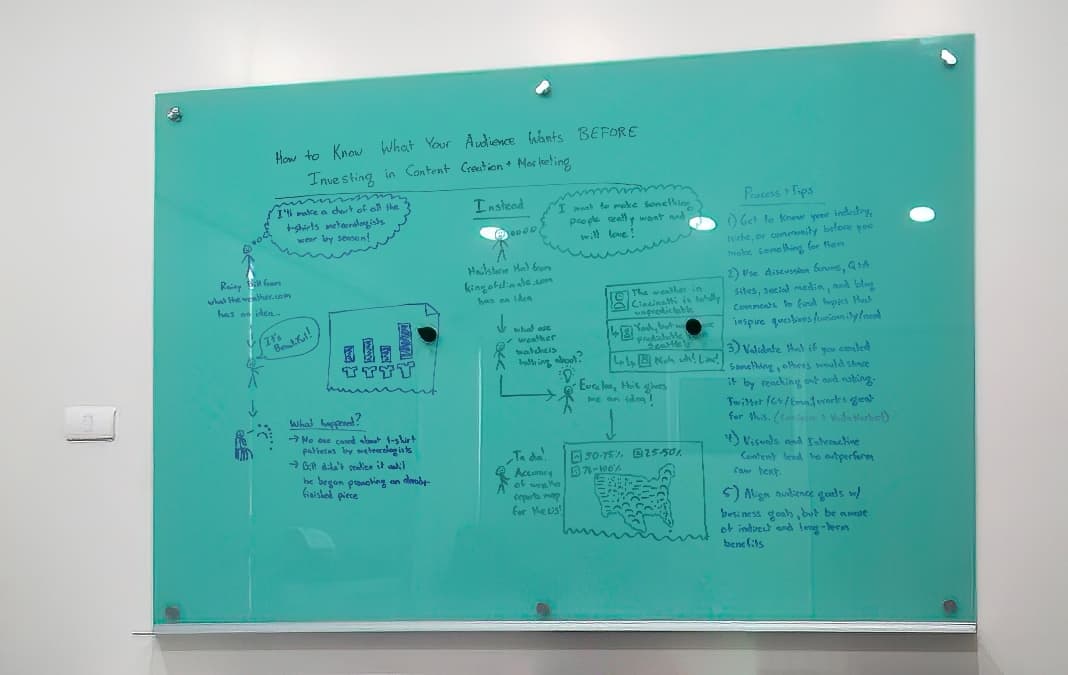 How to Know What Your Audience Wants BEFORE
Investing in Content Creation + Marketing
I'll make a chart of all the
t-shirts meteorologists
wear by season!
Rainy Bill from
whattheweather.com
has an idea...
It's
Beautiful!
What happened?
→ No one cared about t-shirt
patterns by meteorologists
→ Bill didn't realize it until
he began promoting an already-
finished piece
Instead
I want to make something
people really want and
will love!
Hailstorm Mat from
kingofclimate.com
has an idea
What are
weather
watchers
talking about?
The weather in
Cincinatti is totally
unpredictable
Yeah, but
predictable
Seattle's
Eureka, this gives
me an idea!
Ta da!
Accuracy
of weather
reports map
for the US!
50-75% 25-50%
76-100%
Process + Tips
1) Get to know your industry,
niche, or community before you
make something for them
2) Use discussion forums, Q+A
sites, social media, and blog
comments to find topics that
inspire questions/curiosity/need
3) Validate that if you created
something, others would share
it by reaching out and asking.
Twitter/G+/Email works great
for this.
4) Visuals and Interactive
Content tend to outperform
raw text.
5) Align audience goals w/
business goals, but be aware
of indirect and long-term
benefits